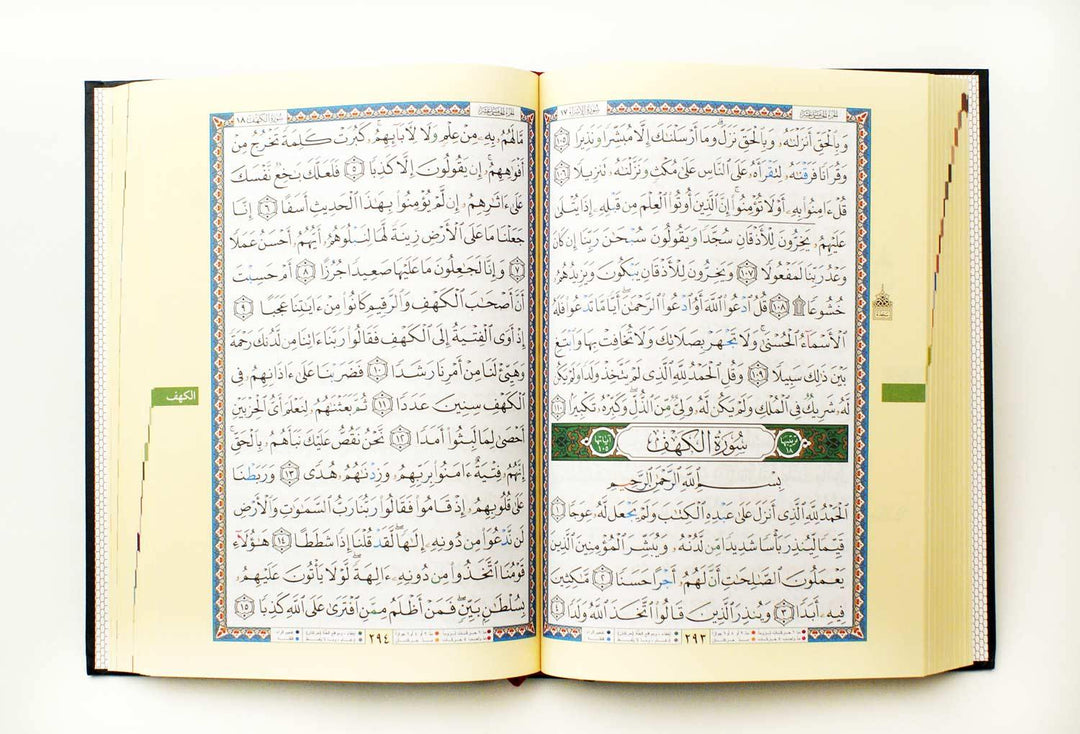 سورة الإسراء ١٧
الجزء الخامس عشر
وَبِالْحَقِّ أَنزَلْنَٰهُ وَبِالْحَقِّ نَزَلَ وَمَا أَرْسَلْنَٰكَ إِلَّا مُبَشِّرًا وَنَذِيرًا ١٠٥
وَقُرْءَانًا فَرَقْنَٰهُ لِتَقْرَأَهُ عَلَى النَّاسِ عَلَىٰ مُكْثٍ وَنَزَّلْنَٰهُ تَنزِيلًا ١٠٦
قُلْ ءَامِنُوا بِهِ أَوْ لَا تُؤْمِنُوا إِنَّ الَّذِينَ أُوتُوا الْعِلْمَ مِن قَبْلِهِ إِذَا يُتْلَىٰ
عَلَيْهِمْ يَخِرُّونَ لِلْأَذْقَانِ سُجَّدًا وَيَقُولُونَ سُبْحَٰنَ رَبِّنَا إِن كَانَ
وَعْدُ رَبِّنَا لَمَفْعُولًا ١٠٧ وَيَخِرُّونَ لِلْأَذْقَانِ يَبْكُونَ وَيَزِيدُهُمْ
خُشُوعًا ۩ ١٠٨ قُلِ ادْعُوا اللَّهَ أَوُ ادْعُوا الرَّحْمَٰنَ أَيًّا مَا تَدْعُوا فَلَهُ
الْأَسْمَاءُ الْحُسْنَىٰ وَلَا تَجْهَرْ بِصَلَاتِكَ وَلَا تُخَافِتْ بِهَا وَابْتَغِ
بَيْنَ ذَٰلِكَ سَبِيلًا ١٠٩ وَقُلِ الْحَمْدُ لِلَّهِ الَّذِي لَمْ يَتَّخِذْ وَلَدًا وَلَمْ يَكُن
لَّهُ شَرِيكٌ فِي الْمُلْكِ وَلَمْ يَكُن لَّهُ وَلِيٌّ مِّنَ الذُّلِّ وَكَبِّرْهُ تَكْبِيرًا ١١٠
ترتيبها ١٨ سُورَةُ الْكَهْفِ آياتها ١٠٥
بِسْمِ اللَّهِ الرَّحْمَٰنِ الرَّحِيمِ
الْحَمْدُ لِلَّهِ الَّذِي أَنزَلَ عَلَىٰ عَبْدِهِ الْكِتَٰبَ وَلَمْ يَجْعَل لَّهُ عِوَجًا ١
قَيِّمًا لِّيُنذِرَ بَأْسًا شَدِيدًا مِّن لَّدُنْهُ وَيُبَشِّرَ الْمُؤْمِنِينَ الَّذِينَ
يَعْمَلُونَ الصَّٰلِحَٰتِ أَنَّ لَهُمْ أَجْرًا حَسَنًا ٢ مَّٰكِثِينَ
فِيهِ أَبَدًا ٣ وَيُنذِرَ الَّذِينَ قَالُوا اتَّخَذَ اللَّهُ وَلَدًا ٤
٢٩٣
الجزء الخامس عشر
سورة الكهف ١٨
مَّا لَهُم بِهِ مِنْ عِلْمٍ وَلَا لِءَابَائِهِمْ كَبُرَتْ كَلِمَةً تَخْرُجُ مِنْ
أَفْوَٰهِهِمْ إِن يَقُولُونَ إِلَّا كَذِبًا ٥ فَلَعَلَّكَ بَٰخِعٌ نَّفْسَكَ
عَلَىٰ ءَاثَٰرِهِمْ إِن لَّمْ يُؤْمِنُوا بِهَٰذَا الْحَدِيثِ أَسَفًا ٦ إِنَّا
جَعَلْنَا مَا عَلَى الْأَرْضِ زِينَةً لَّهَا لِنَبْلُوَهُمْ أَيُّهُمْ أَحْسَنُ عَمَلًا
٧ وَإِنَّا لَجَٰعِلُونَ مَا عَلَيْهَا صَعِيدًا جُرُزًا ٨ أَمْ حَسِبْتَ
أَنَّ أَصْحَٰبَ الْكَهْفِ وَالرَّقِيمِ كَانُوا مِنْ ءَايَٰتِنَا عَجَبًا ٩
إِذْ أَوَى الْفِتْيَةُ إِلَى الْكَهْفِ فَقَالُوا رَبَّنَا ءَاتِنَا مِن لَّدُنكَ رَحْمَةً
وَهَيِّئْ لَنَا مِنْ أَمْرِنَا رَشَدًا ١٠ فَضَرَبْنَا عَلَىٰ ءَاذَانِهِمْ فِي
الْكَهْفِ سِنِينَ عَدَدًا ١١ ثُمَّ بَعَثْنَٰهُمْ لِنَعْلَمَ أَيُّ الْحِزْبَيْنِ
أَحْصَىٰ لِمَا لَبِثُوا أَمَدًا ١٢ نَّحْنُ نَقُصُّ عَلَيْكَ نَبَأَهُم بِالْحَقِّ
إِنَّهُمْ فِتْيَةٌ ءَامَنُوا بِرَبِّهِمْ وَزِدْنَٰهُمْ هُدًى ١٣ وَرَبَطْنَا
عَلَىٰ قُلُوبِهِمْ إِذْ قَامُوا فَقَالُوا رَبُّنَا رَبُّ السَّمَٰوَٰتِ وَالْأَرْضِ
لَن نَّدْعُوَا مِن دُونِهِ إِلَٰهًا لَّقَدْ قُلْنَا إِذًا شَطَطًا ١٤ هَٰؤُلَاءِ
قَوْمُنَا اتَّخَذُوا مِن دُونِهِ ءَالِهَةً لَّوْلَا يَأْتُونَ عَلَيْهِم
بِسُلْطَٰنٍ بَيِّنٍ فَمَنْ أَظْلَمُ مِمَّنِ افْتَرَىٰ عَلَى اللَّهِ كَذِبًا ١٥
٢٩٤
الكهف